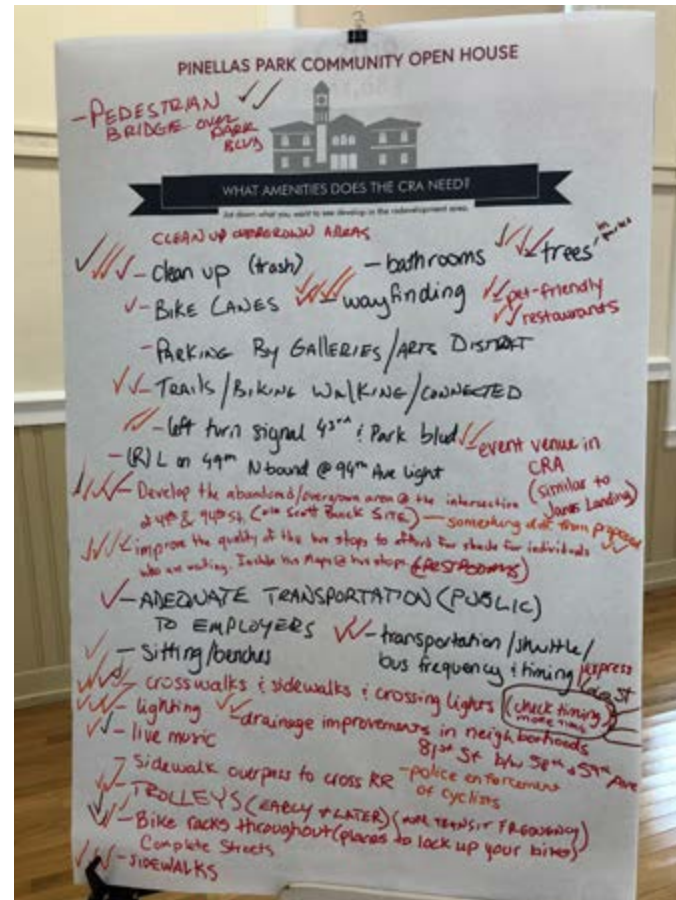 PINELLAS PARK COMMUNITY OPEN HOUSE
- PEDESTRIAN
BRIDGE OVER
PARK
BLVD
WHAT AMENITIES DOES THE CRA NEED?
Jot down what you want to see develop in the redevelopment area.
CLEAN UP OVERGROWN AREAS
- clean up (trash)
- bathrooms
- trees in parks
- BIKE LANES
- wayfinding
pet-friendly
restaurants
- PARKING BY GALLERIES/ARTS DISTRICT
- TRAILS/BIKING WALKING/CONNECTED
- left turn signal 43rd & Park blvd
- event venue in
CRA
(similar to
Janes Landing)
- (R) L on 49th N bound @ 94th Ave Light
- Develop the abandoned/overgrown area @ the intersection
of & 94th St. (old Scott SITE) - something from proposed
- improve the quality of the bus stops to afford for shade for individuals
who are waiting. Include bus Maps @ bus stops (RESTROOMS)
- ADEQUATE TRANSPORTATION (PUBLIC)
TO EMPLOYERS
- transportation/shuttle/
bus frequency & timing/express
- Sitting/benches
- crosswalks & sidewalks & crossing lights (check timing
more time)
- lighting
- drainage improvements in neighborhoods
81st St b/w 58th & 59th Ave
- live music
- Sidewalk overpass to cross RR
- police enforcement
of cyclists
- TROLLEYS (EARLY & LATER) (MORE TRANSIT FREQUENCY)
- Bike racks throughout (places to lock up your bikes)
Complete Streets
- SIDEWALKS